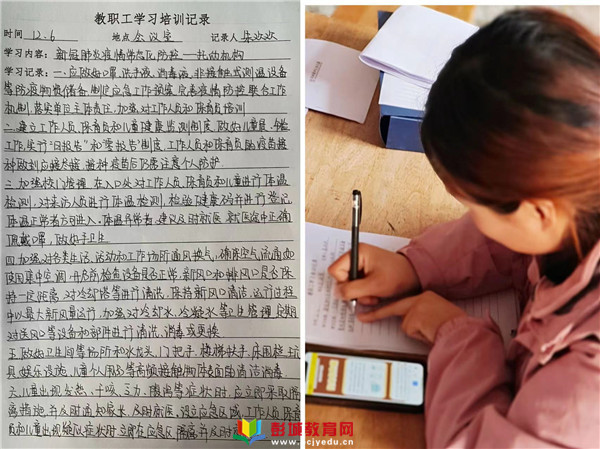 教职工学习培训记录
时间 12.6 地点 会议室 记录人 朱欢欢
学习内容：新冠肺炎疫情常态化防控——托幼机构
学习记录：一.应做好口罩、洗手液、消毒液、非接触式测温设备
等防疫物资储备,制定应急工作预案,完善疫情防控联合工作
机制,落实单位主体责任,加强对工作人员和保育员培训
二.建立工作人员、保育员和儿童健康监测制度,做好儿童晨、午检
工作,实行“日报告”和“零报告”制度,工作人员和保育员 疫苗接
种做到应接尽接,接种疫苗后仍需注意个人防护
三.加强校门管理,在入口处对工作人员、保育员和儿童进行体温
检测,对来访人员进行体温检测,检验健康码并进行登记,
体温正常者方可进入,体温异常者,建议及时就医,就医途中正确
佩戴口罩,做好手卫生
四.加强对各类生活、活动和工作场所通风换气,确保空气流通,如
使用集中空调,开启前检查设备是否正常,新风口和排风口是否保
持一定距离,对冷却塔等进行清洗,保持新风口清洁,运行过程
中以最大新风量运行,加强对冷却水、冷凝水等卫生管理,定期
对送风口等设备和部件进行清洗、消毒或更换
五.做好卫生间等场所和水龙头、门把手、楼梯扶手、床围栏、玩
具、娱乐设施、儿童个人用品等高频接触物体表面的清洁消毒
六.儿童出现发热、干咳、乏力、腹泻等症状时,应立即采取隔
离措施,并及时通知家长,及时就医,设立应急区域,工作人员、保育
员和儿童出现疑似症状时,立即在应急区隔离并及时
彭城教育网
www.pcjyedu.cn